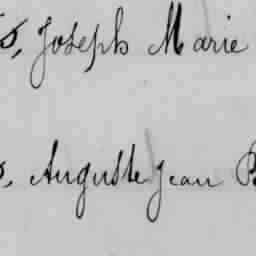 Joseph Marie
Auguste Jean